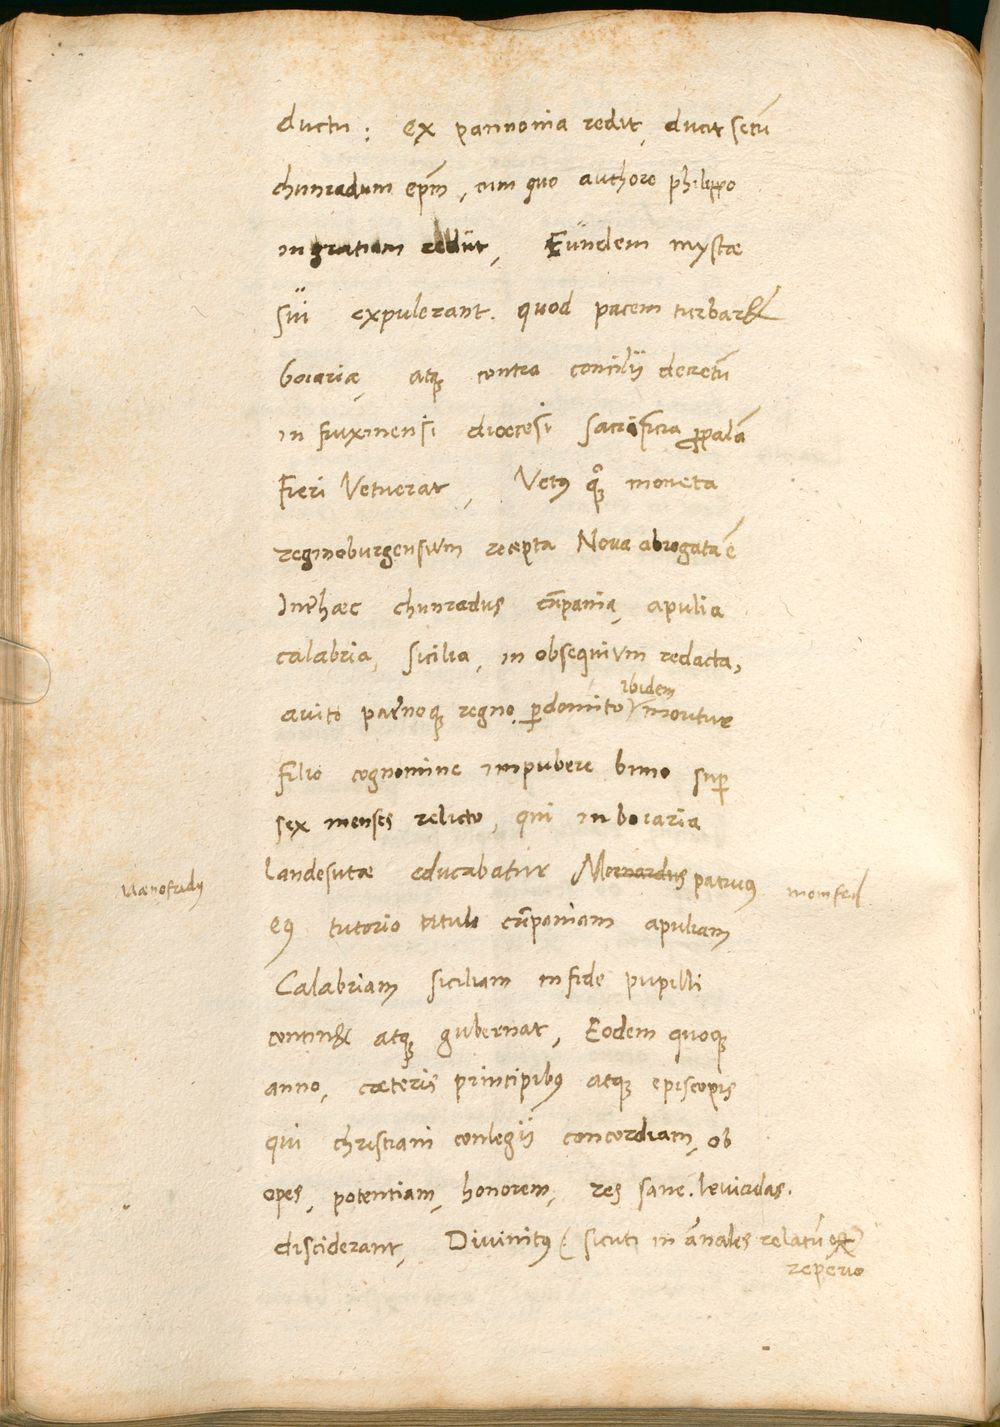 ductu : ex pannonia redit, ducit secũ
chunradum ep̃m, cum quo authore philippo
in gratiam rediit, Eundem mystæ
sui expulerant. quod pacem turbaret
boiariæ, atq; contra concilii decretũ
in fruxinensi diœcesi sacrificia ꝓpalã
Fieri Vetuerat, Vetꝰ qͦq; moneta
reginoburgensium recepta Nova abrogata ẽ
Inter hæc chunradus cãpania, apulia
calabria, sicilia, in obsequium redacta,
avito paternoq; regno ꝑdomito ibidem moritur
filio cognomine impubere bimo suꝑ
sex menses relicto, qui in boiaria
landesutæ educabatur Mernardus patruꝰ momfrid
Mænofridꝰ
eiꝰ tutorio titulo cãpaniam apuliam
Calabriam siciliam in fide pupilli
continet atq; gubernat, Eodem quoq;
anno, cæteris principibꝰ atq; episcopis
qui christiani conlegii concordiam, ob
opes, potentiam, honorem, res sane. leviculas.
disciderant, Divinitꝰ (sicuti in ãnales relatũ esse
reperio